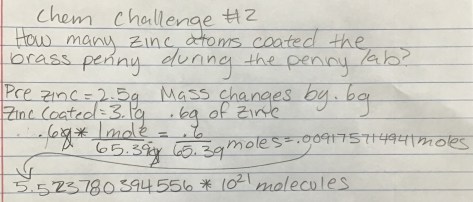 Chem Challenge #2
How many zinc atoms coated the
brass penny during the penny lab?
Pre zinc = 2.5g Mass changes by .6g
Zinc Coated = 3.1g .6g of zinc
.6g * 1mole = .6
65.39g 65.39 moles = .009175714941 moles
5.523780394556 * 10²¹ molecules